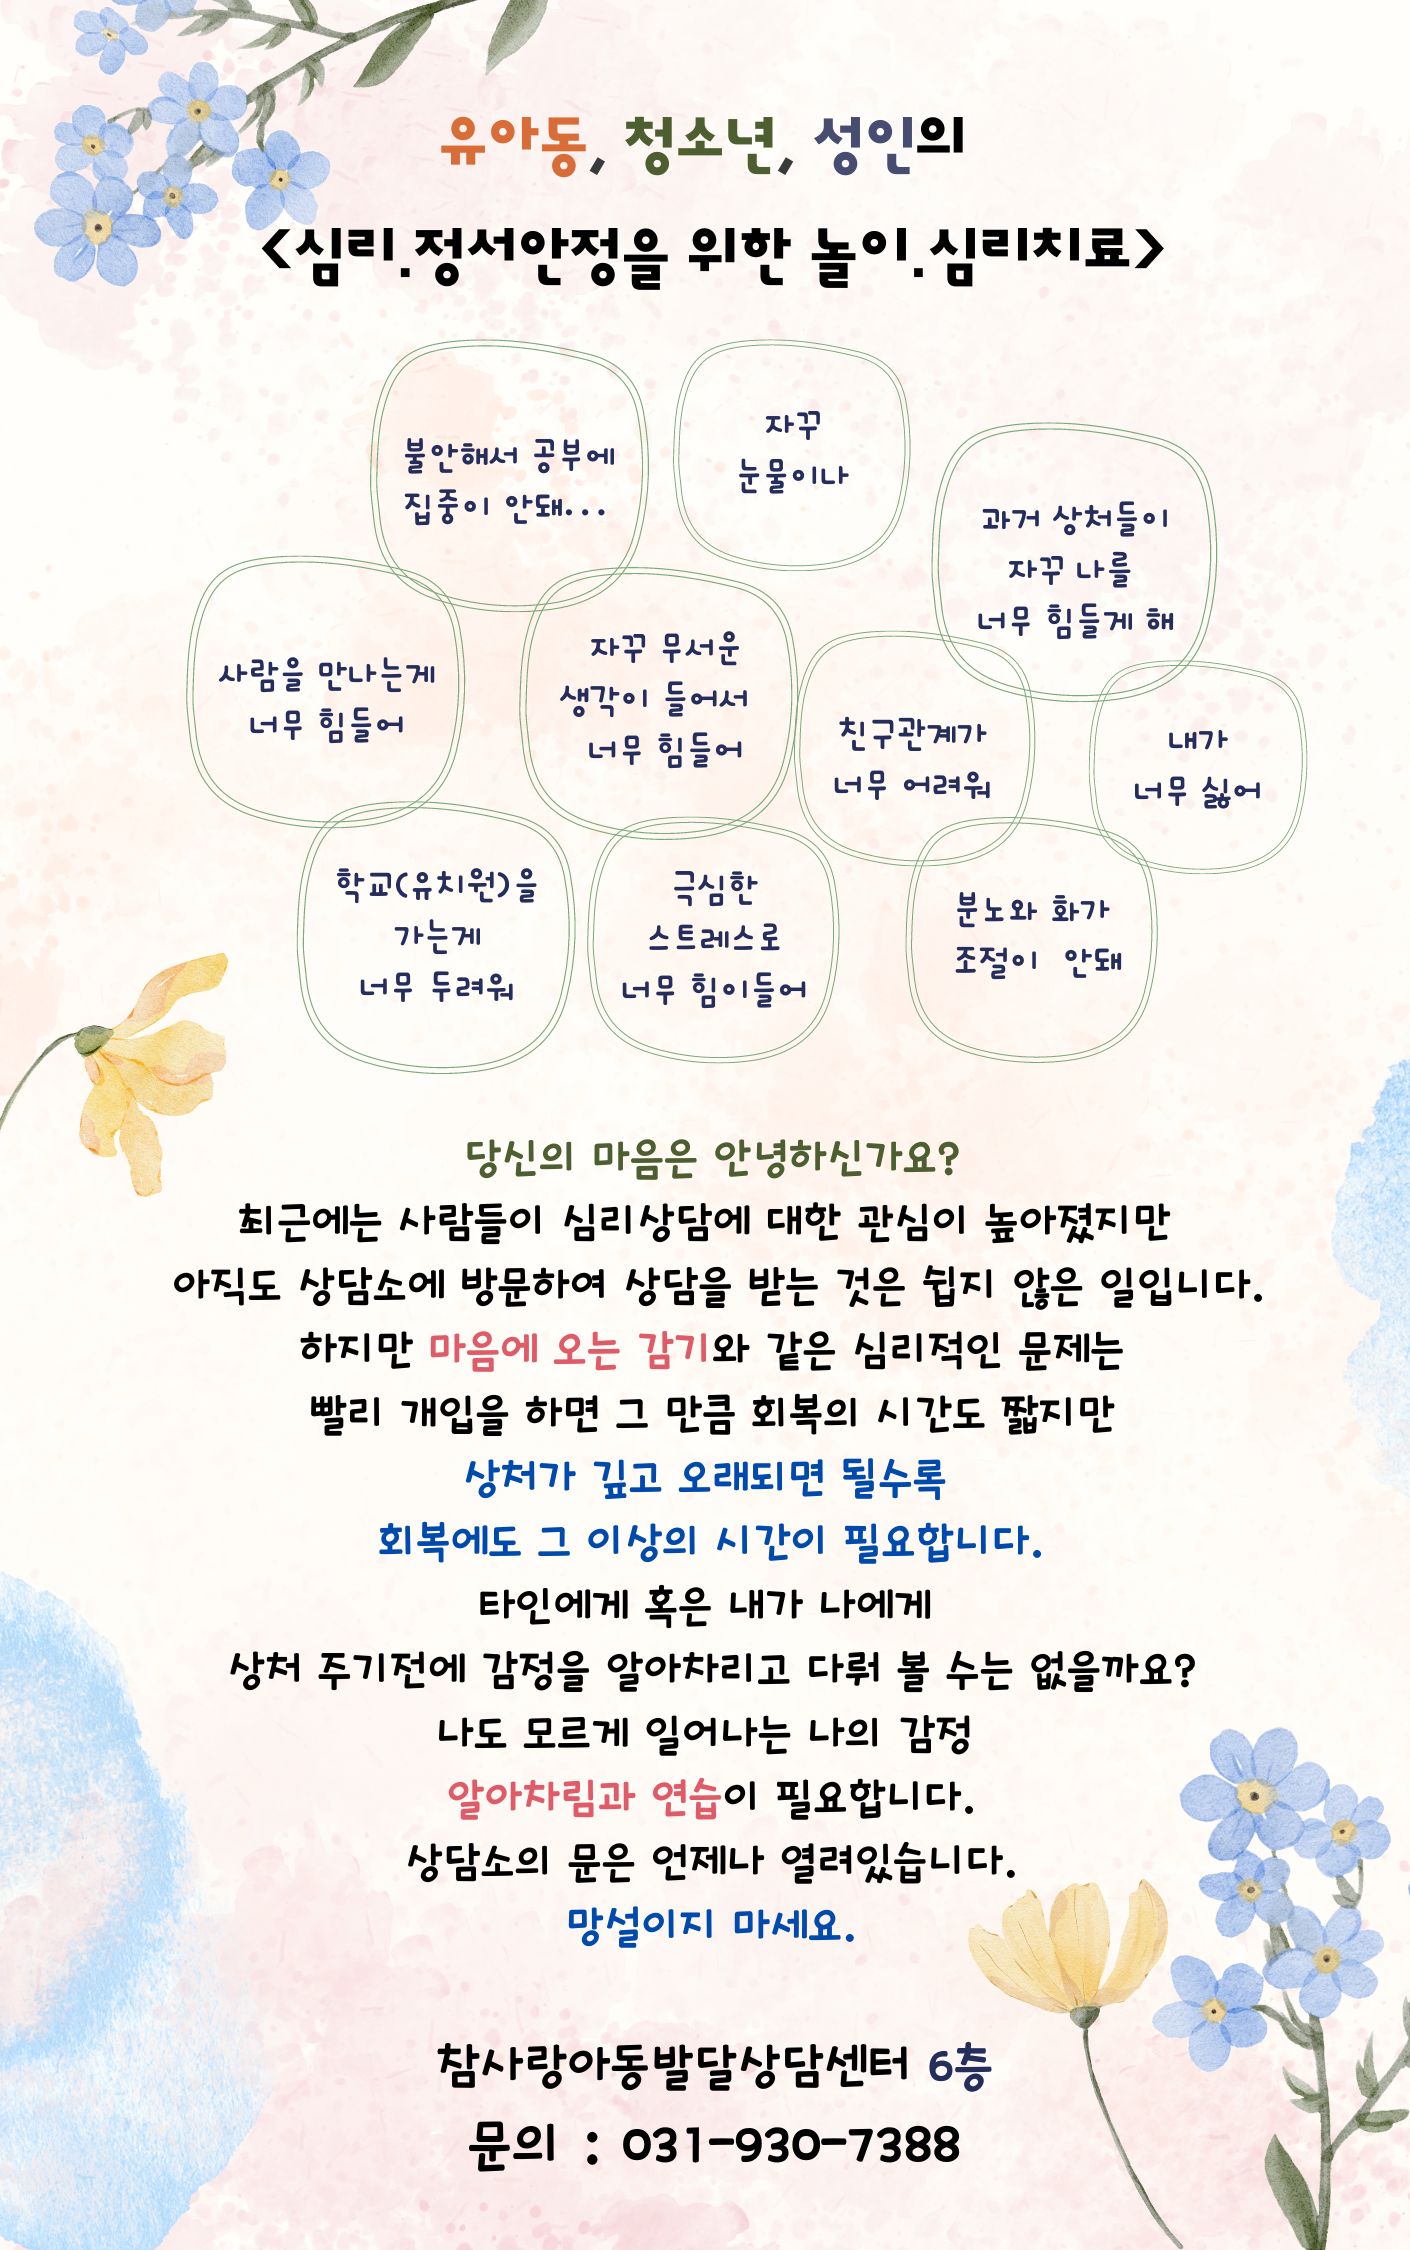 유아동, 청소년, 성인의
<심리.정서안정을 위한 놀이.심리치료>
불안해서 공부에
집중이 안돼...
자꾸
눈물이나
과거 상처들이
자꾸 나를
너무 힘들게 해
사람을 만나는게
너무 힘들어
자꾸 무서운
생각이 들어서
너무 힘들어
친구관계가
너무 어려워
내가
너무 싫어
학교(유치원)을
가는게
너무 두려워
극심한
스트레스로
너무 힘이들어
분노와 화가
조절이 안돼
당신의 마음은 안녕하신가요?
최근에는 사람들이 심리상담에 대한 관심이 높아졌지만
아직도 상담소에 방문하여 상담을 받는 것은 쉽지 않은 일입니다.
하지만 마음에 오는 감기와 같은 심리적인 문제는
빨리 개입을 하면 그 만큼 회복의 시간도 짧지만
상처가 깊고 오래되면 될수록
회복에도 그 이상의 시간이 필요합니다.
타인에게 혹은 내가 나에게
상처 주기전에 감정을 알아차리고 다뤄 볼 수는 없을까요?
나도 모르게 일어나는 나의 감정
알아차림과 연습이 필요합니다.
상담소의 문은 언제나 열려있습니다.
망설이지 마세요.
참사랑아동발달상담센터 6층
문의 : 031-930-7388